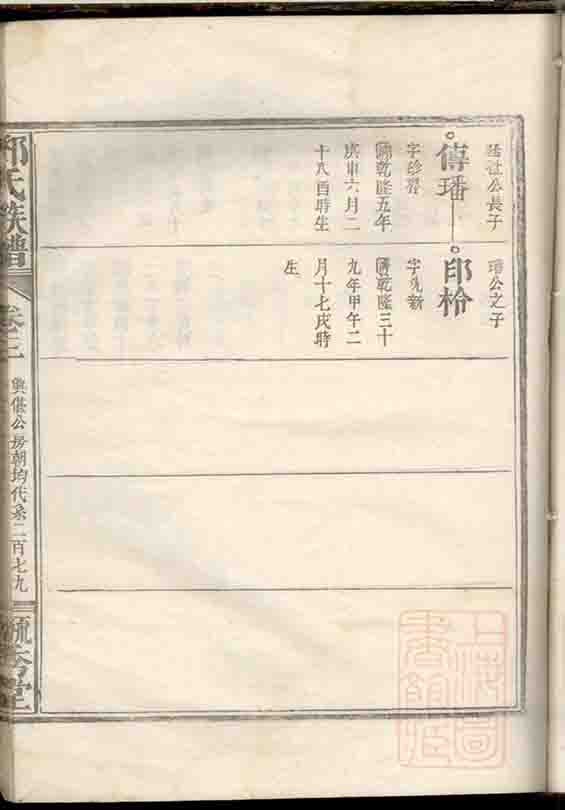 公長子
傳璠
字
清乾隆五年
庚申六月二
十八酉時生
璠公之子
印柃
字九新
清乾隆三十
九年甲午二
月十七戌時
生
氏族譜
卷三
興公房朝均代系二百七九
堂
上海圖書館藏